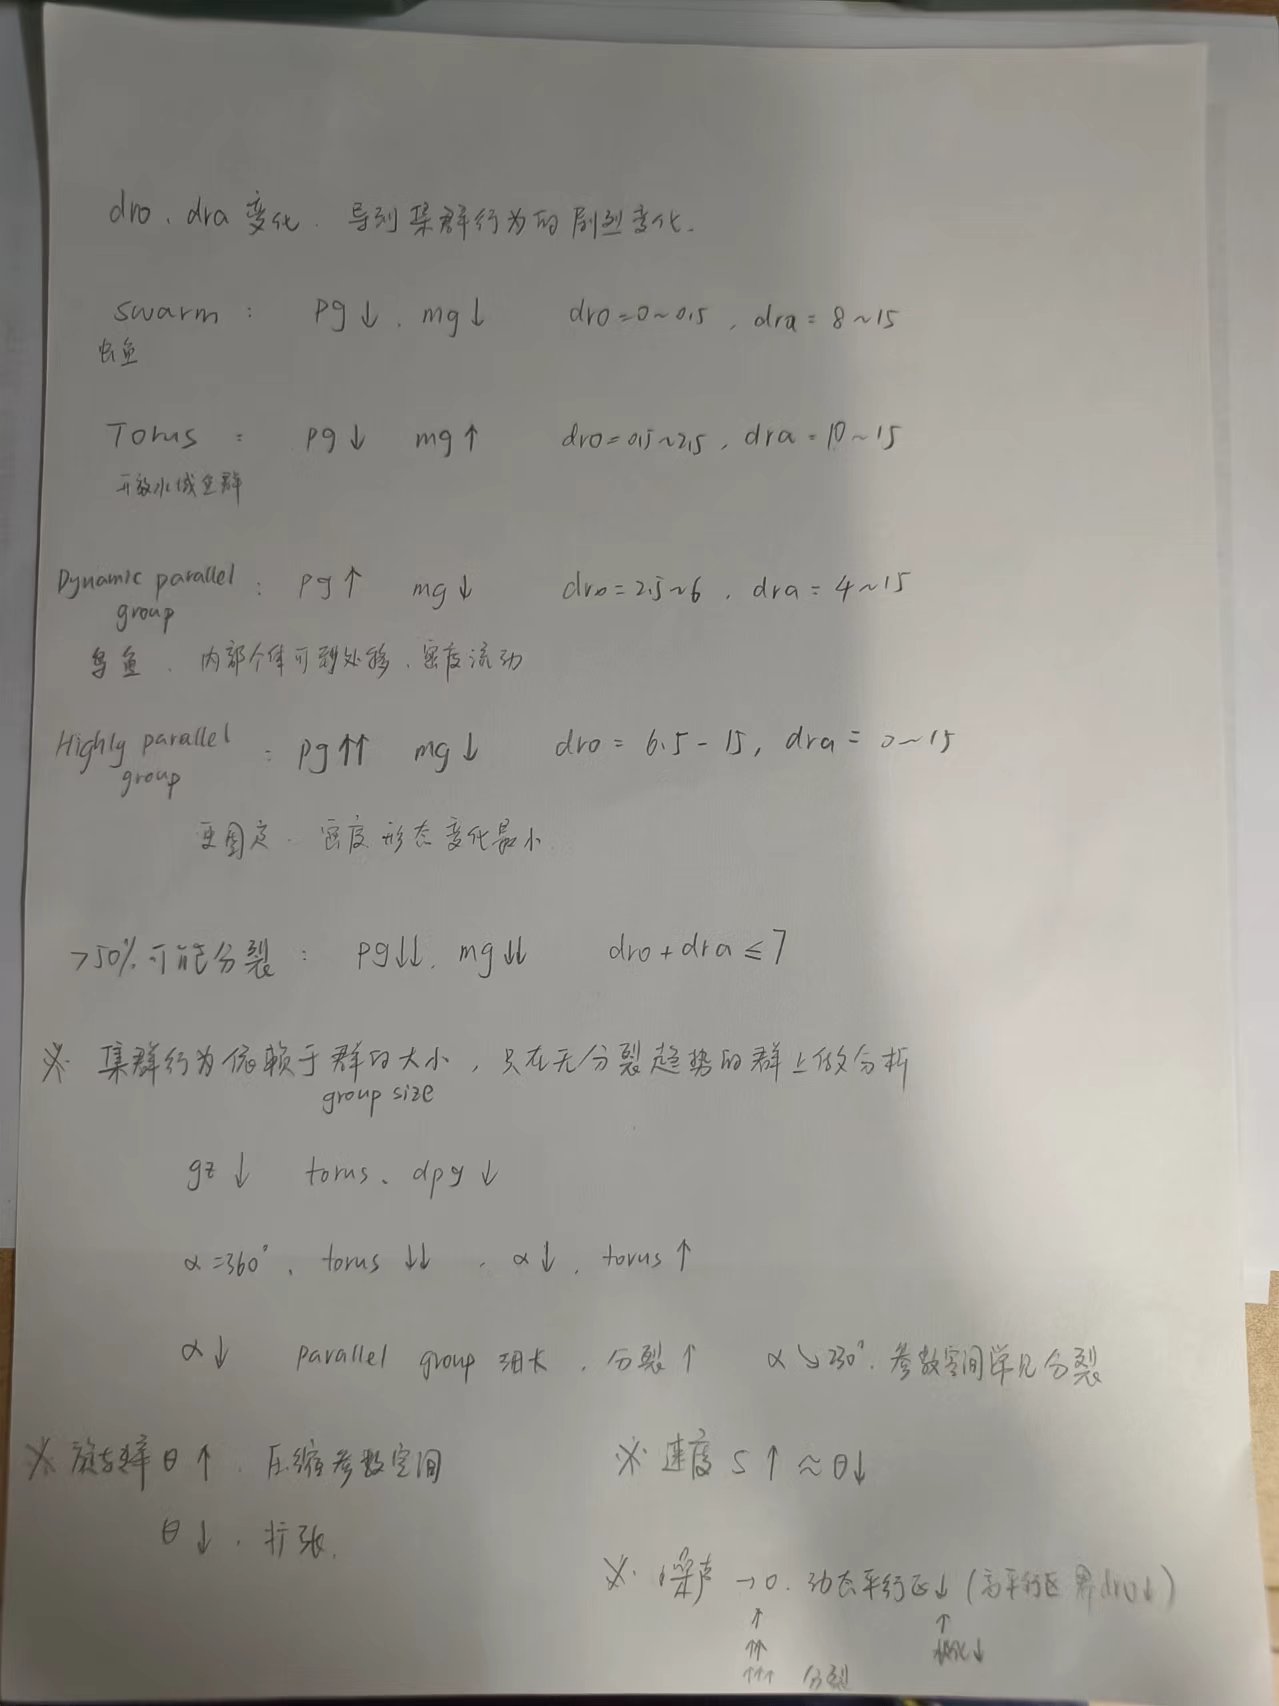 dro、dra 变化. 导到集群行为的剧烈变化.
swarm : pg↓、mg↓ dro=0~0.5, dra=8~15
虫鱼
Torus : pg↓ mg↑ dro=0.5~2.5, dra=10~15
开放水域鱼群
Dynamic parallel group : pg↑ mg↓ dro=2.5~6, dra=4~15
鸟鱼、内部个体可到处移、密度流动
Highly parallel group : pg↑↑ mg↓ dro = 6.5-15, dra = 0~15
更固定. 密度形态变化最小.
>50%可能分裂 : pg↓↓、mg↓↓ dro+dra≤7
※ 集群行为依赖于群的大小, 只在无分裂趋势的群上做分析
group size
gz↓ torus、dpg↓
α=360°、torus↓↓ 、α↓、torus↑
α↓ parallel group 细长、分裂↑ α↘230°、参数空间常见分裂
※ 旋转率θ↑、压缩参数空间
θ↓、扩张.
※ 速度 s↑≈θ↓
※ 噪声→0、动态平行区↓(高平行区 dro↓)
↑ ↑
↑↑ ↓
↑↑↑ 分裂